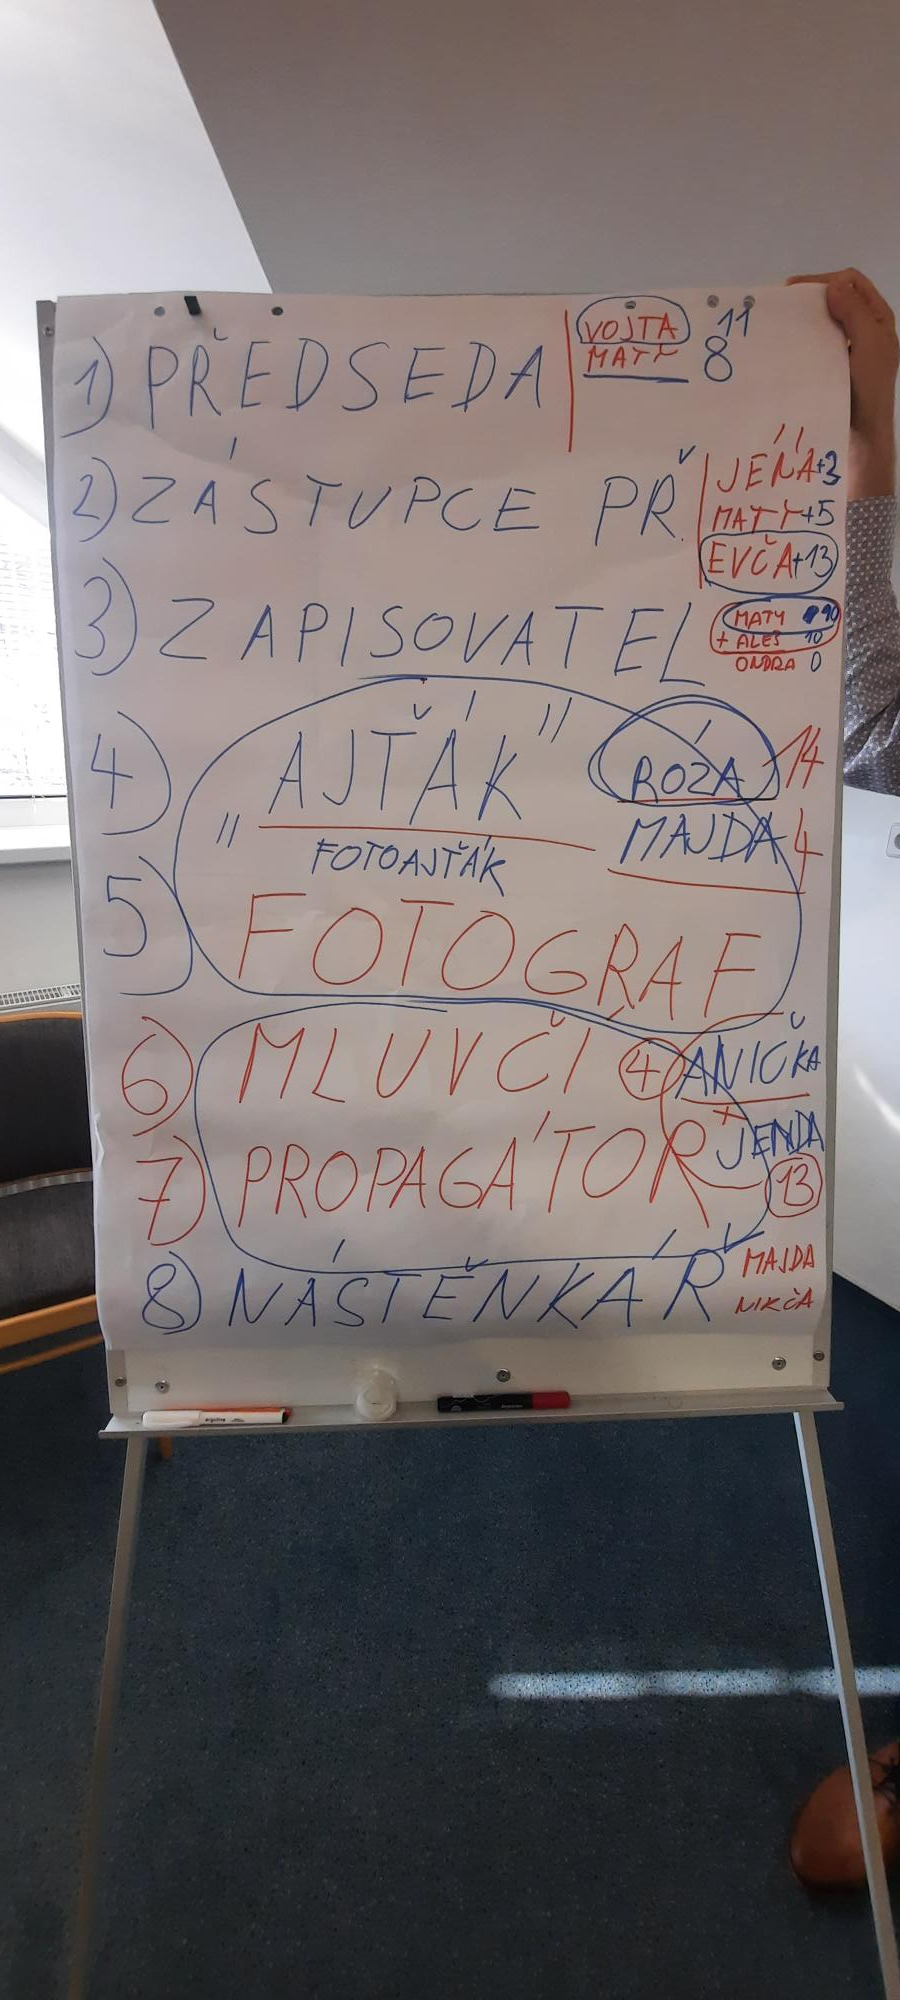 1) PŘEDSEDA
VOJTA 11
MATY 8
2) ZÁSTUPCE PŘ.
JEŇA +3
MATY +5
EVČA +13
3) ZAPISOVATEL
MATY 10
+ ALEŠ 10
ONDRA 0
4) "AJŤÁK"
RÓZA 14
FOTOAJŤÁK
MAJDA 4
5) FOTOGRAF
6) MLUVČÍ 4 ANIČKA
+ JENDA
7) PROPAGÁTOR 13
8) NÁSTĚNKÁŘ
MAJDA
NIKČA